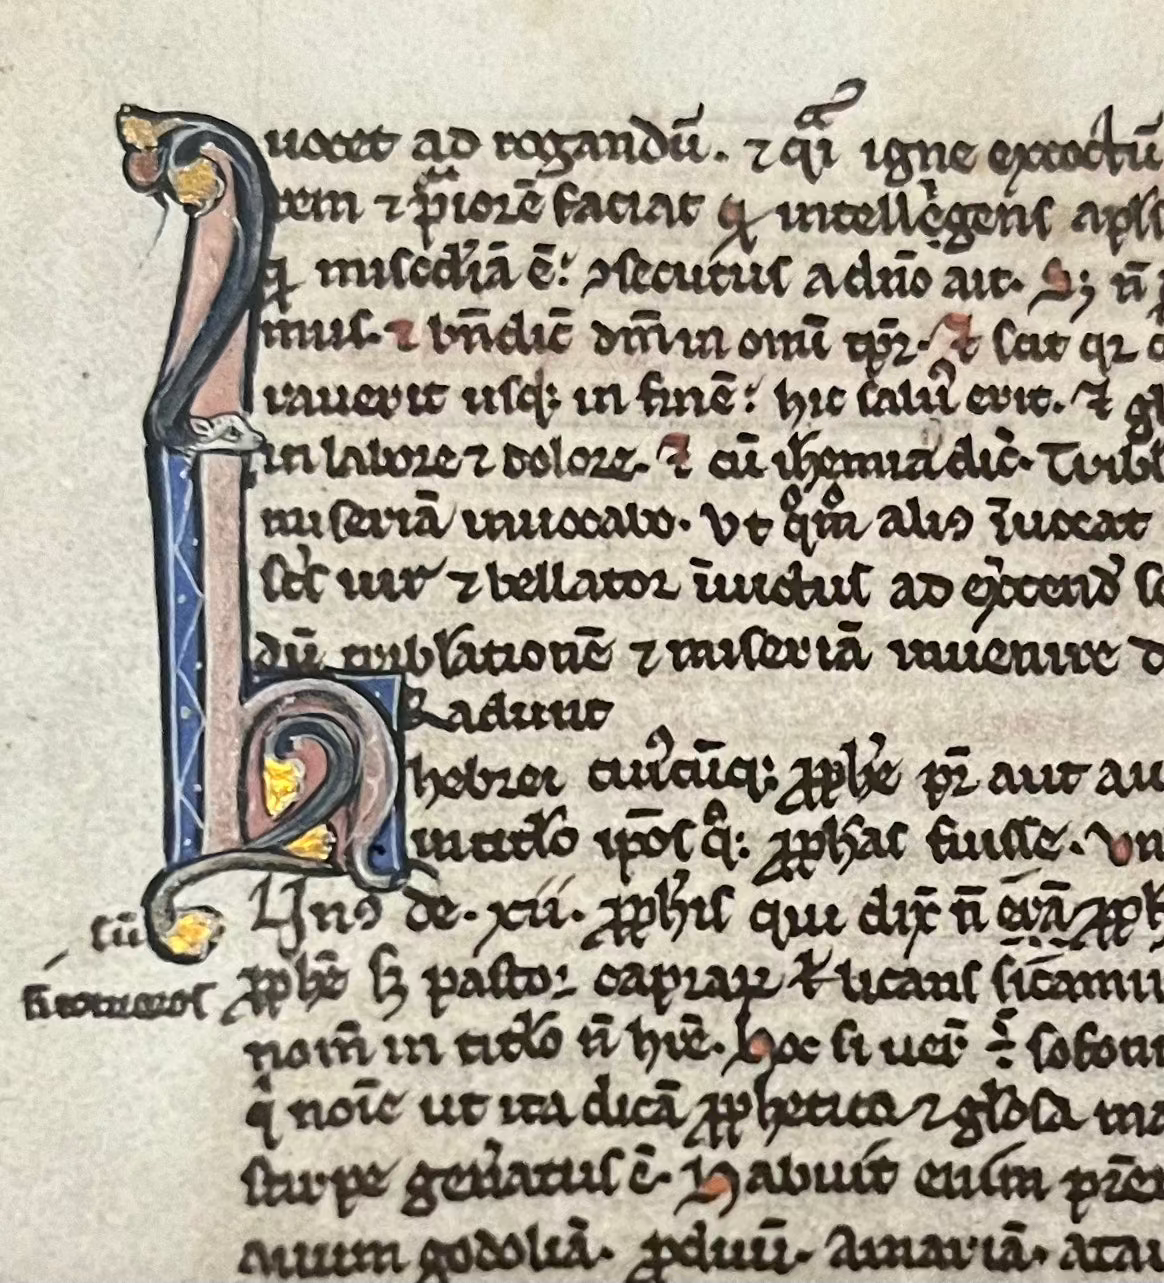 uocet ad rogandū. ⁊ q̄i igne excoctū
rem ⁊ p̄iorē faciat q intellègens apls
q miscdīā ē: ꝯsecutus a dn̄o ait. S; n̄
mus. ⁊ bn̄dic̄ dn̄m in omī tp̄r. ⁊ scit qꝛ
rauerit usq; in finē: hic saluꝰ erit. ⁊ gl
in labore ⁊ dolore. ⁊ cū ihemia dic̄. Tribl
miseriā inuocabo. Vt qͦmͦ aliꝰ īuocat
sc̄s uir ⁊ bellator īuictus ad exc̄cend
dū tribl̄ationē ⁊ miseriā inuenire
Radunt
hebrei cuiꝰcūq; ꝓph̄e pr̄ aut au
in titl̄o ip̄os q: ꝓphas fuisse.
Unꝰ de .xii. ꝓph̄is qui dix̄ n̄ erā ꝓph
ꝓph̄e s; pastor capraꝝ uellicans sicamu
nom̄ in titl̄o n̄ hr̄e. hoc si uer̄ ÷ sofoni
q noīe ut ita dicā ꝓphetico ⁊ gl̄osa ma
stirpe gen̄atus ē. habuit enim pr̄e
auum godoliā. ꝓauū. Amariā. ata
sū